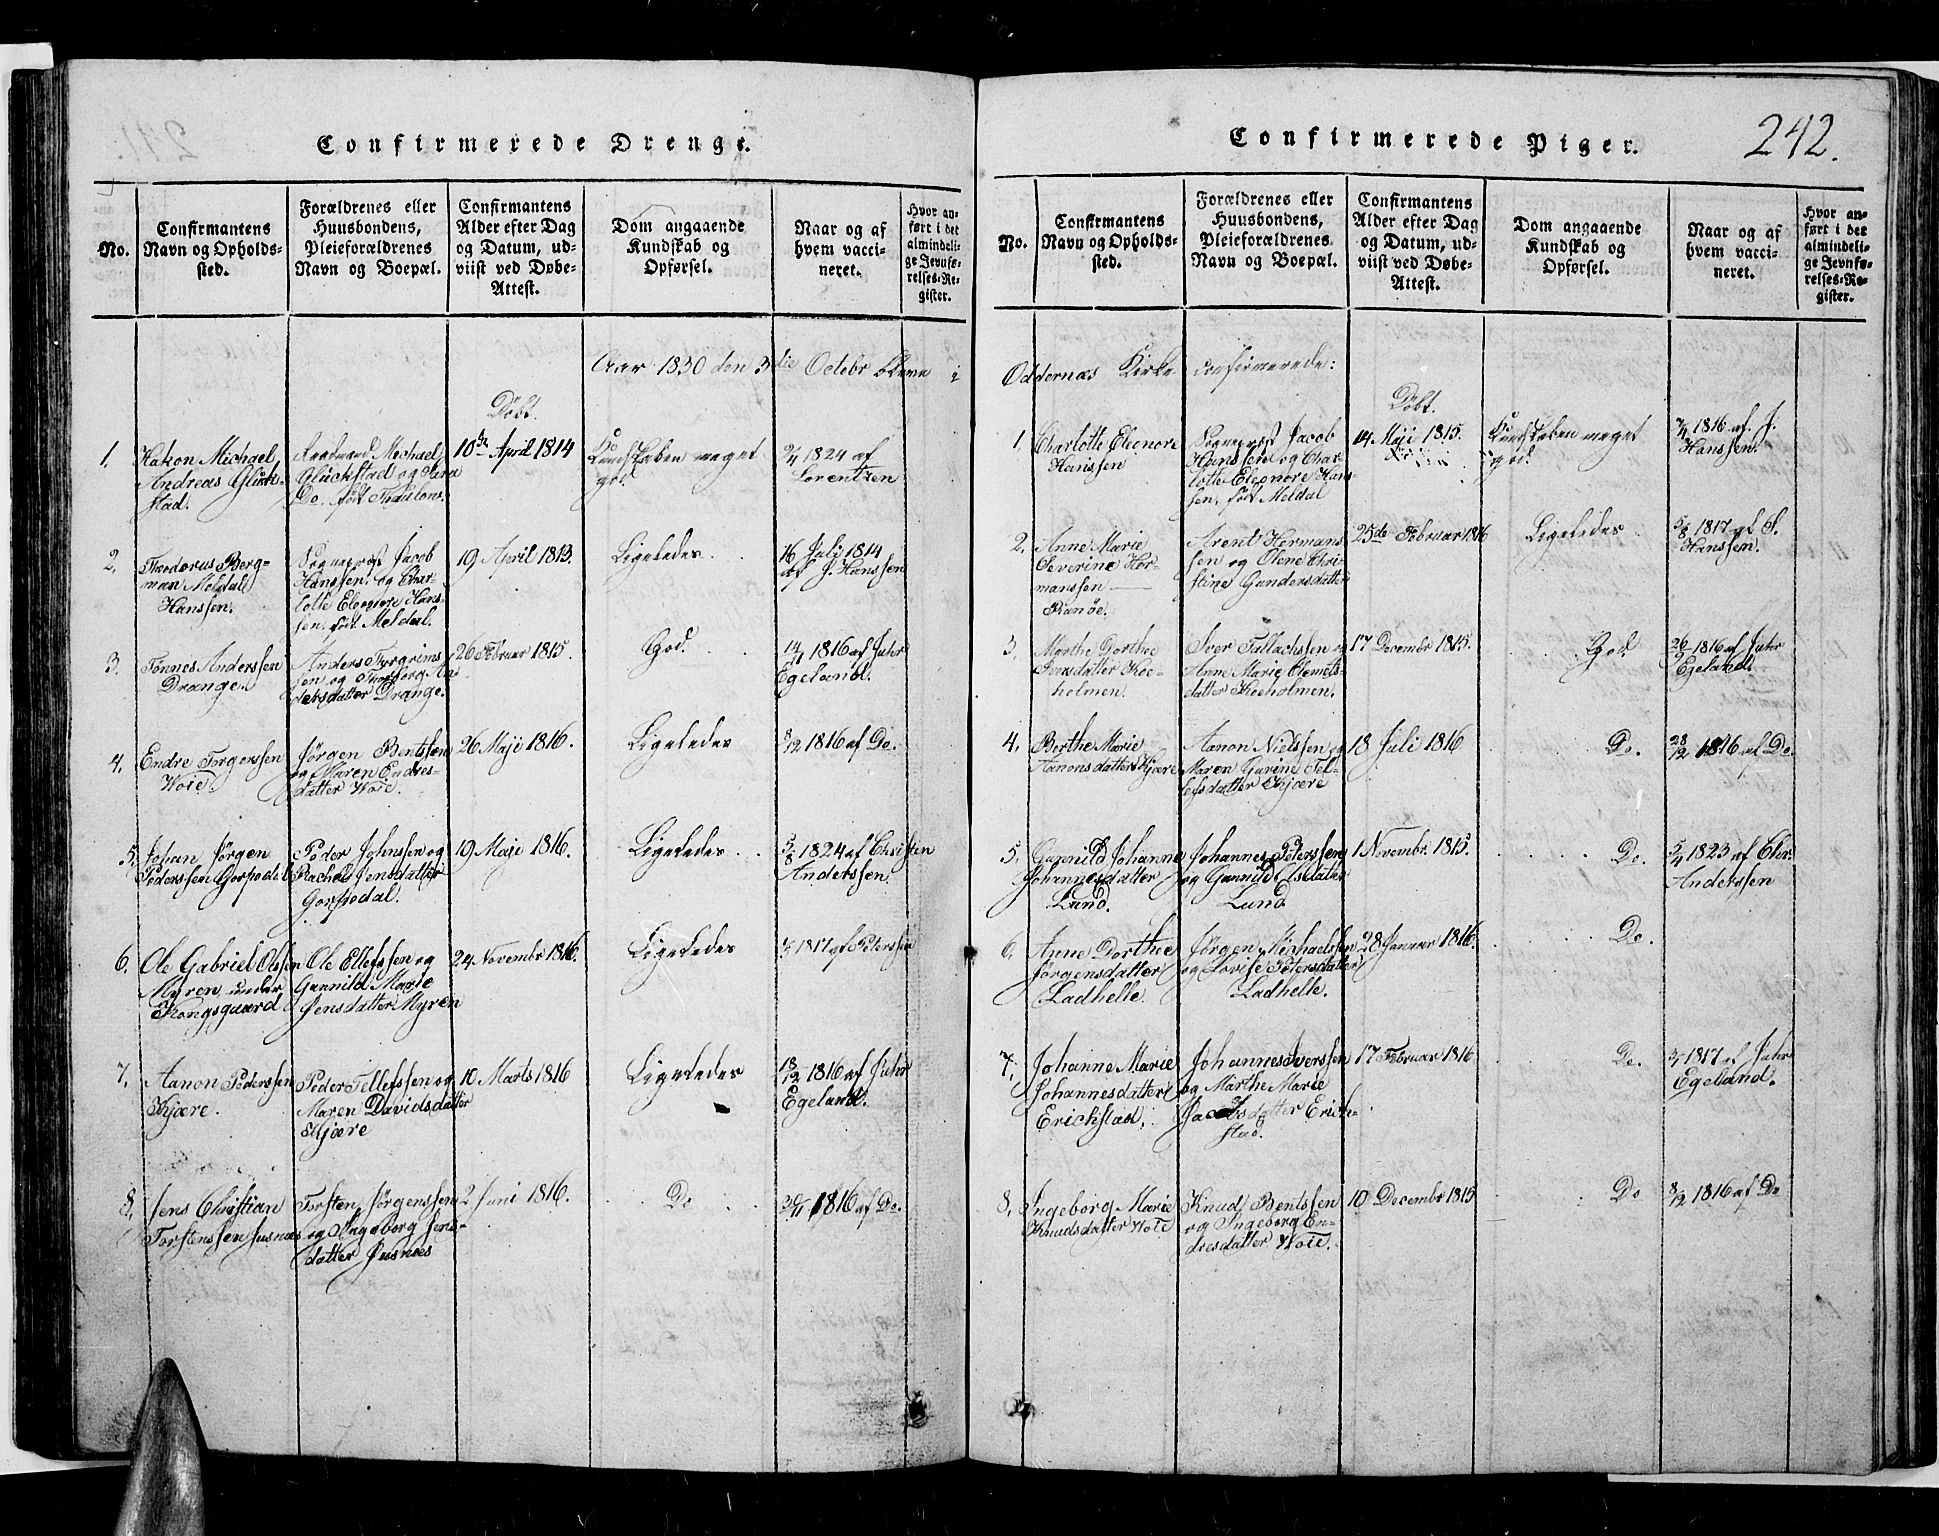 Confirmerede Drenge.
No.
Confirmantens
Navn og Opholds-
sted.
Forældrenes eller
Huusbondens,
Pleieforældrenes
Navn og Boepæl.
Confirmantens
Alder efter Dag
og Datum, ud-
viist ved Døbe-
Attest.
Dom angaaende
Kundskab og
Opførsel.
Naar og af
hvem vacci-
neret.
Hvor an-
ført i det
almindeli-
ge Jevnfø-
relses-Re-
gister.
Aar 1830 den 3die Octobr bleve i
Döbt.
1.
Hakon Michael
Andreas Glück-
stad.
Michael
Glückstad og
Do. født Thaulow.
10de April 1814
Kundskaben meget
god.
9/4 1824 af
Lorentzen
2.
Theodorus Berg-
man Meldal
Hanssen.
Sogneprest Jacob
Hanssen og Char-
lotte Eleonore Hans-
sen, født Meldal.
19 April 1813
Ligeledes
16 Juli 1814
af J. Hanssen
3.
Tönnes Anderssen
Drange.
Anders Torgrims-
sen og Thorborg An-
dersdatter Drange.
26 Februar 1815.
God.
14/11 1816 af Juhr
Egeland.
4.
Endre Torgenssen
Woie.
Jørgen Bentssen
og Maren Endres-
datter Woie.
26 Maji 1816.
Ligeledes
8/12 1816 af Do.
5.
Johan Jørgen
Pederssen Gorpedal
Peder Johnssen og
Rachel Jensdatter
Gorpedal.
19 Maji 1816.
Ligeledes
5/8 1824 af Christen
Anderssen.
6.
Ole Gabriel Olssen
Myren under
Kongsgaard
Ole Ellefssen og
Gunnild Marie
Jensdatter Myren
24 Novembr 1816.
Ligeledes
1817 af Peterssen
7.
Aanon Pederssen
Kjære.
Peder Tellefssen og
Maren Davidsdatter
Kjære
10 Marts 1816
Ligeledes
18/12 1816 af Juhr
Egeland.
8.
Jens Christian
Torstenssen Jusnæs
Torsten Jørgenssen
og Ingeborg Jens-
datter Jusnæs
2 Juni 1816.
Do
30/11 1816 af Do.
Confirmerede Piger.
242.
No.
Confirmantens
Navn og Opholds-
sted.
Forældrenes eller
Huusbondens,
Pleieforældrenes
Navn og Boepæl.
Confirmantens
Alder efter Dag
og Datum, ud-
viist ved Døbe-
Attest.
Dom angaaende
Kundskab og
Opførsel.
Naar og af
hvem vacci-
neret.
Hvor an-
ført i det
almindeli-
ge Jevnfø-
relses-Re-
gister.
Oddernæs Kirke confirmerede:
Döbt.
1
Charlotte Eleonore
Hanssen
Sogneprest Jacob
Hanssen og Char-
lotte Eleonore Hans-
sen, født Meldal
14 Maji 1815.
Kundskaben meget
god.
7/4 1816 af J.
Hanssen.
2.
Anne Marie
Severine Her-
manssen
Randöe.
Arent Hermans-
sen og Olene Chri-
stine Gundersdatter
25de Februar 1816
Ligeledes
5/8 1817 af J.
Hanssen.
3.
Marthe Dorthe
Iversdatter Koe-
holmen.
Iver Tallachssen og
Anne Marie Clemets-
datter Koeholmen.
17 Decembr 1815.
God
26/9 1816 af Juhr
Egeland.
4.
Berthe Marie
Aanonsdatter Kjære
Aanon Nielssen og
Maren Gurine Tel-
lefsdatter Kjære
18 Juli 1816
Do.
28/12 1816 af Do.
5.
Gunnild Johanne
Johannesdatter
Lund.
Johannes Peterssen
og Gunnild Elsdatter
Lund
1 Novembr. 1815.
Do.
5/4 1823 af Chr.
Anderssen
6.
Anne Dorthe
Jørgensdatter
Ladhelle
Jørgen Michaelssen
og Lovise Petersdatter
Ladhelle.
28 Januar 1816.
Do.
7.
Johanne Marie
Johannesdatter
Erichstad.
Johannes Iverssen
og Marthe Marie
Jacobsdatter Erich-
stad.
17 Februar 1816
Do.
3/1 1817 af Juhr
Egeland.
8.
Ingeborg Marie
Knudsdatter Woie
Knud Bentssen
og Ingeborg En-
dresdatter Woie.
10 Decembr 1815
Do
8/12 1816 af Do